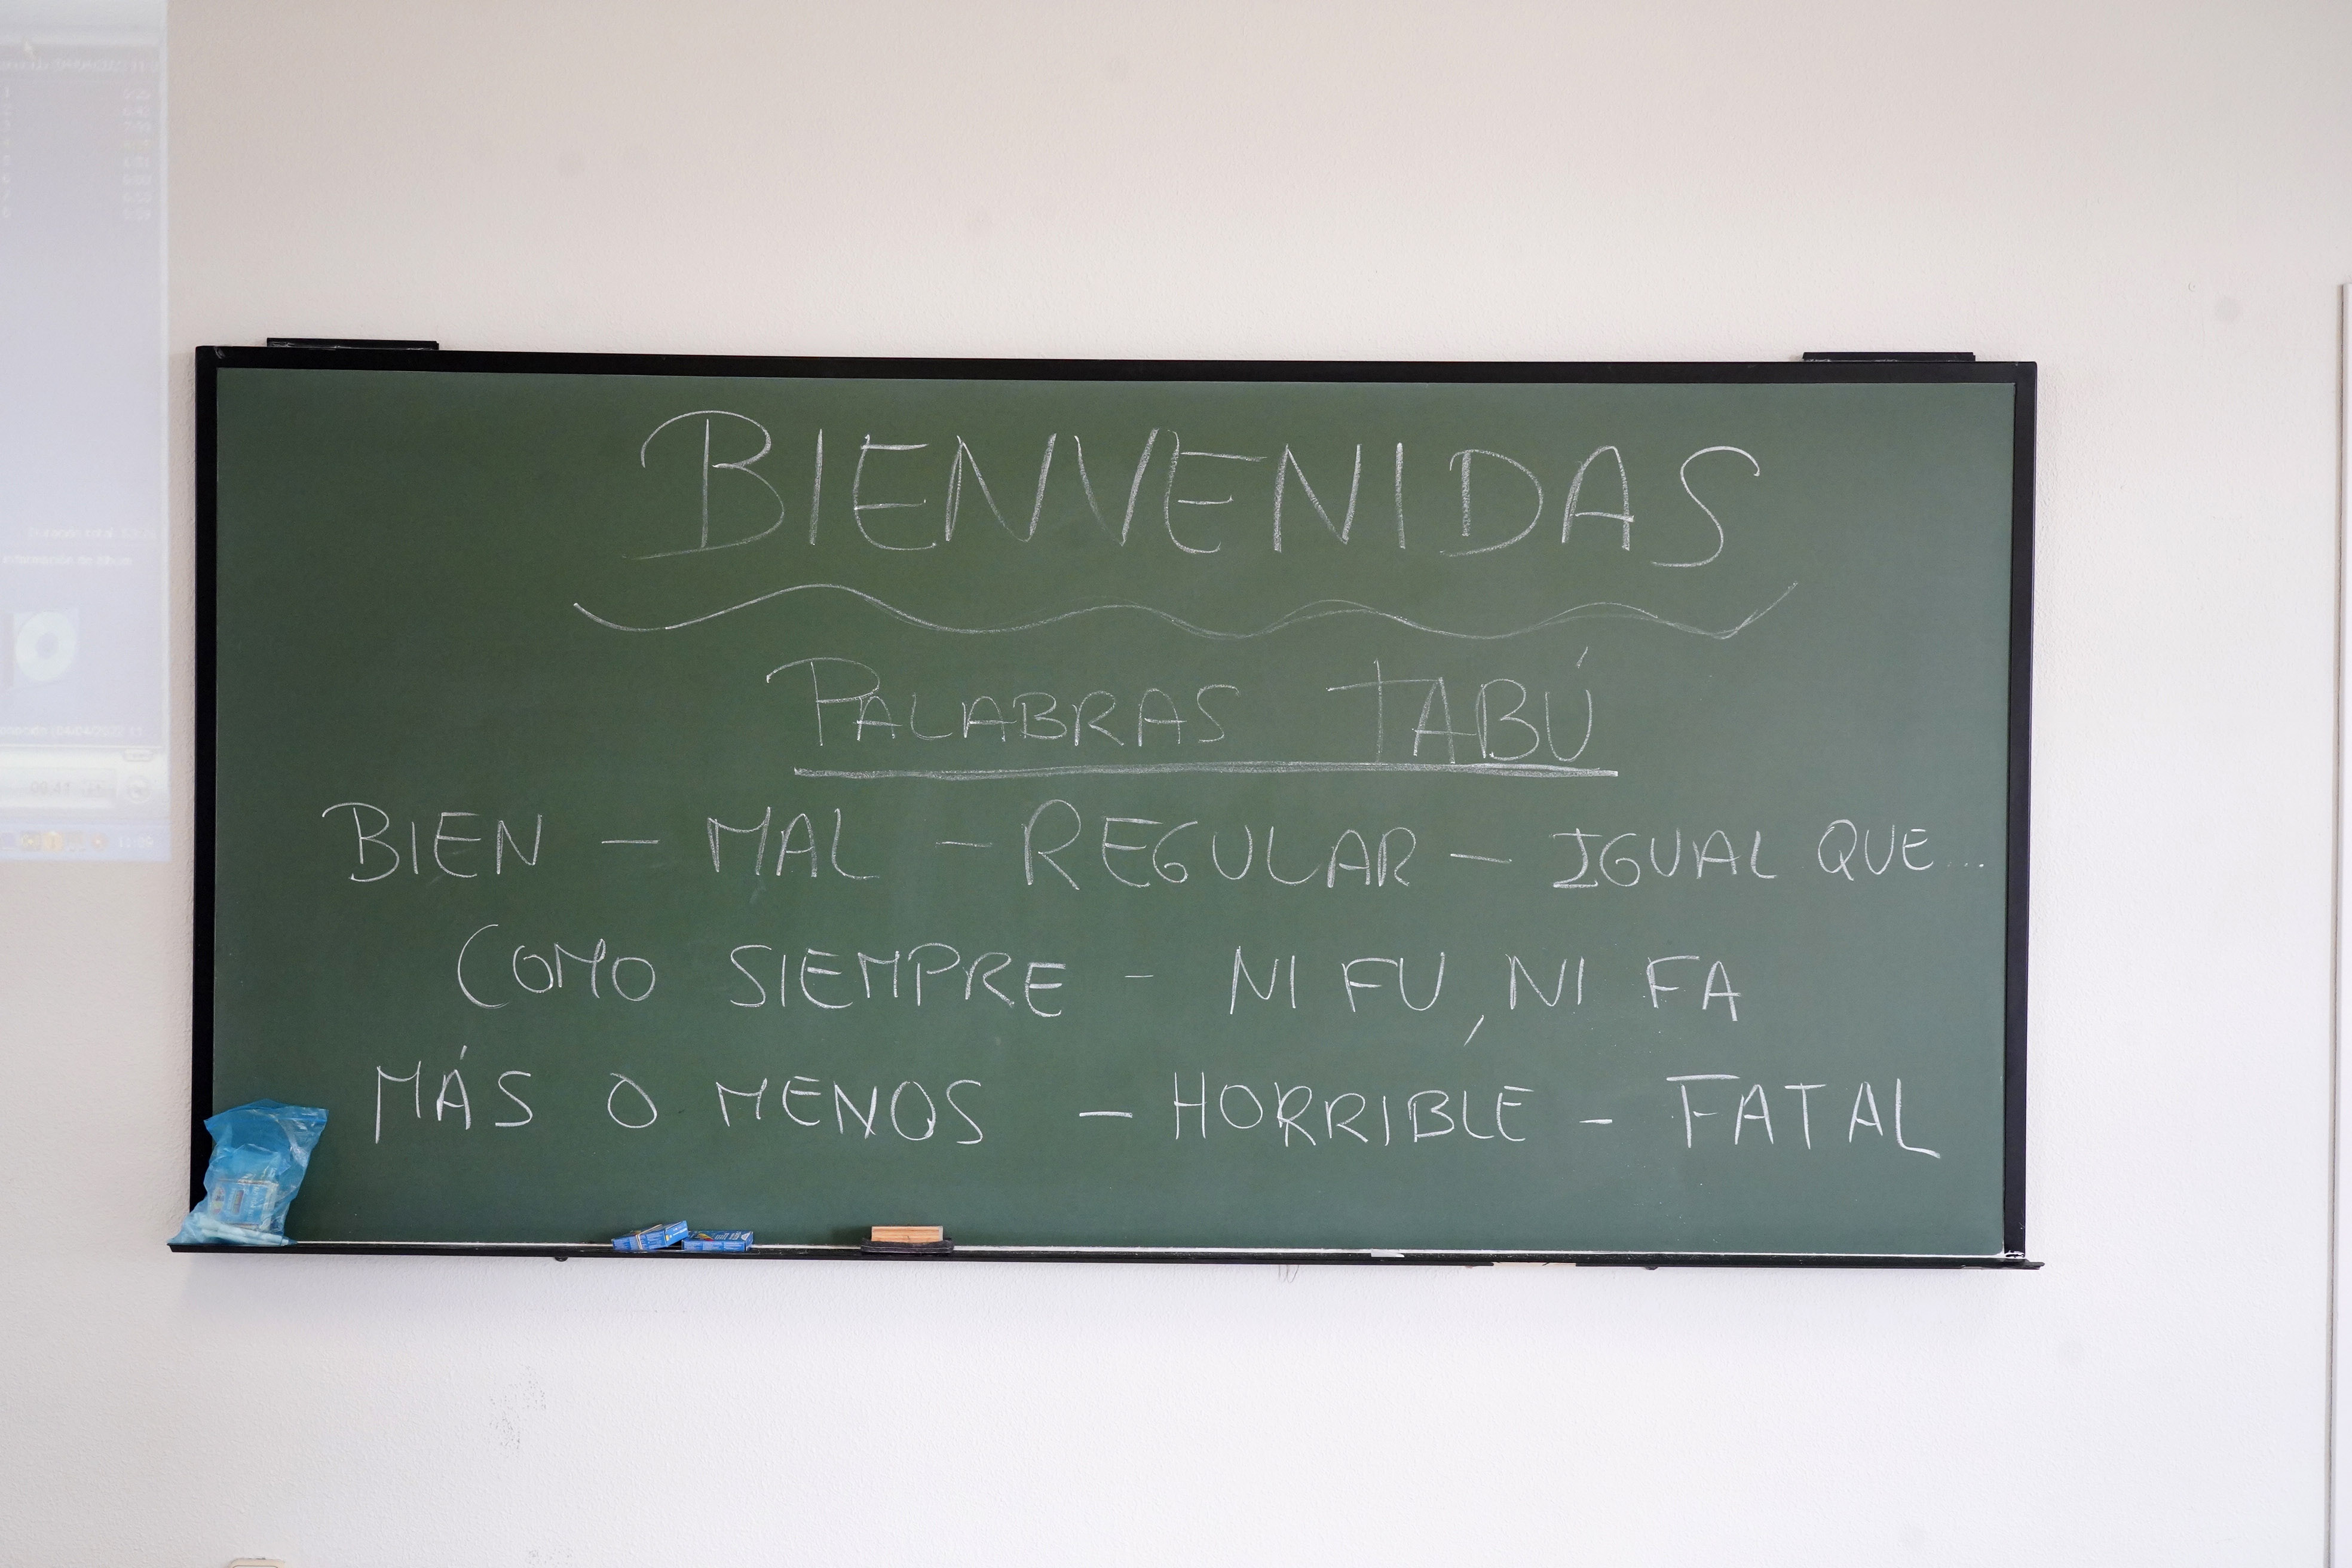 BIENVENIDAS
PALABRAS TABÚ
BIEN - MAL - REGULAR - IGUAL QUE...
COMO SIEMPRE - NI FU, NI FA
MÁS O MENOS - HORRIBLE - FATAL
11:09